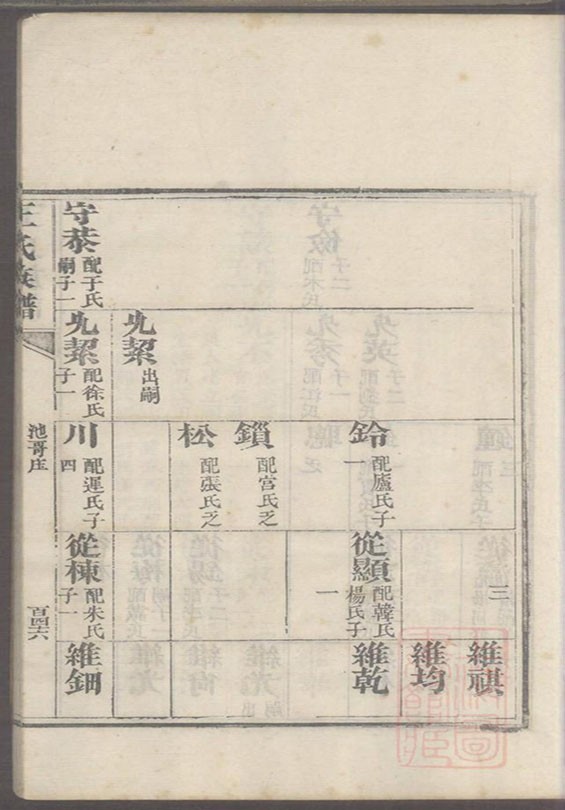 維祺
三
維均
鈴 配廬氏子一
從顯 配韓氏楊氏子一
維乾
鎖 配宮氏乏
松 配張氏乏
允絜 出嗣
守恭 配于氏嗣子一
允絜 配徐氏子一
川 配運氏子四
從棟 配朱氏子一
維鈿
王氏族譜
池哥庄
百四六